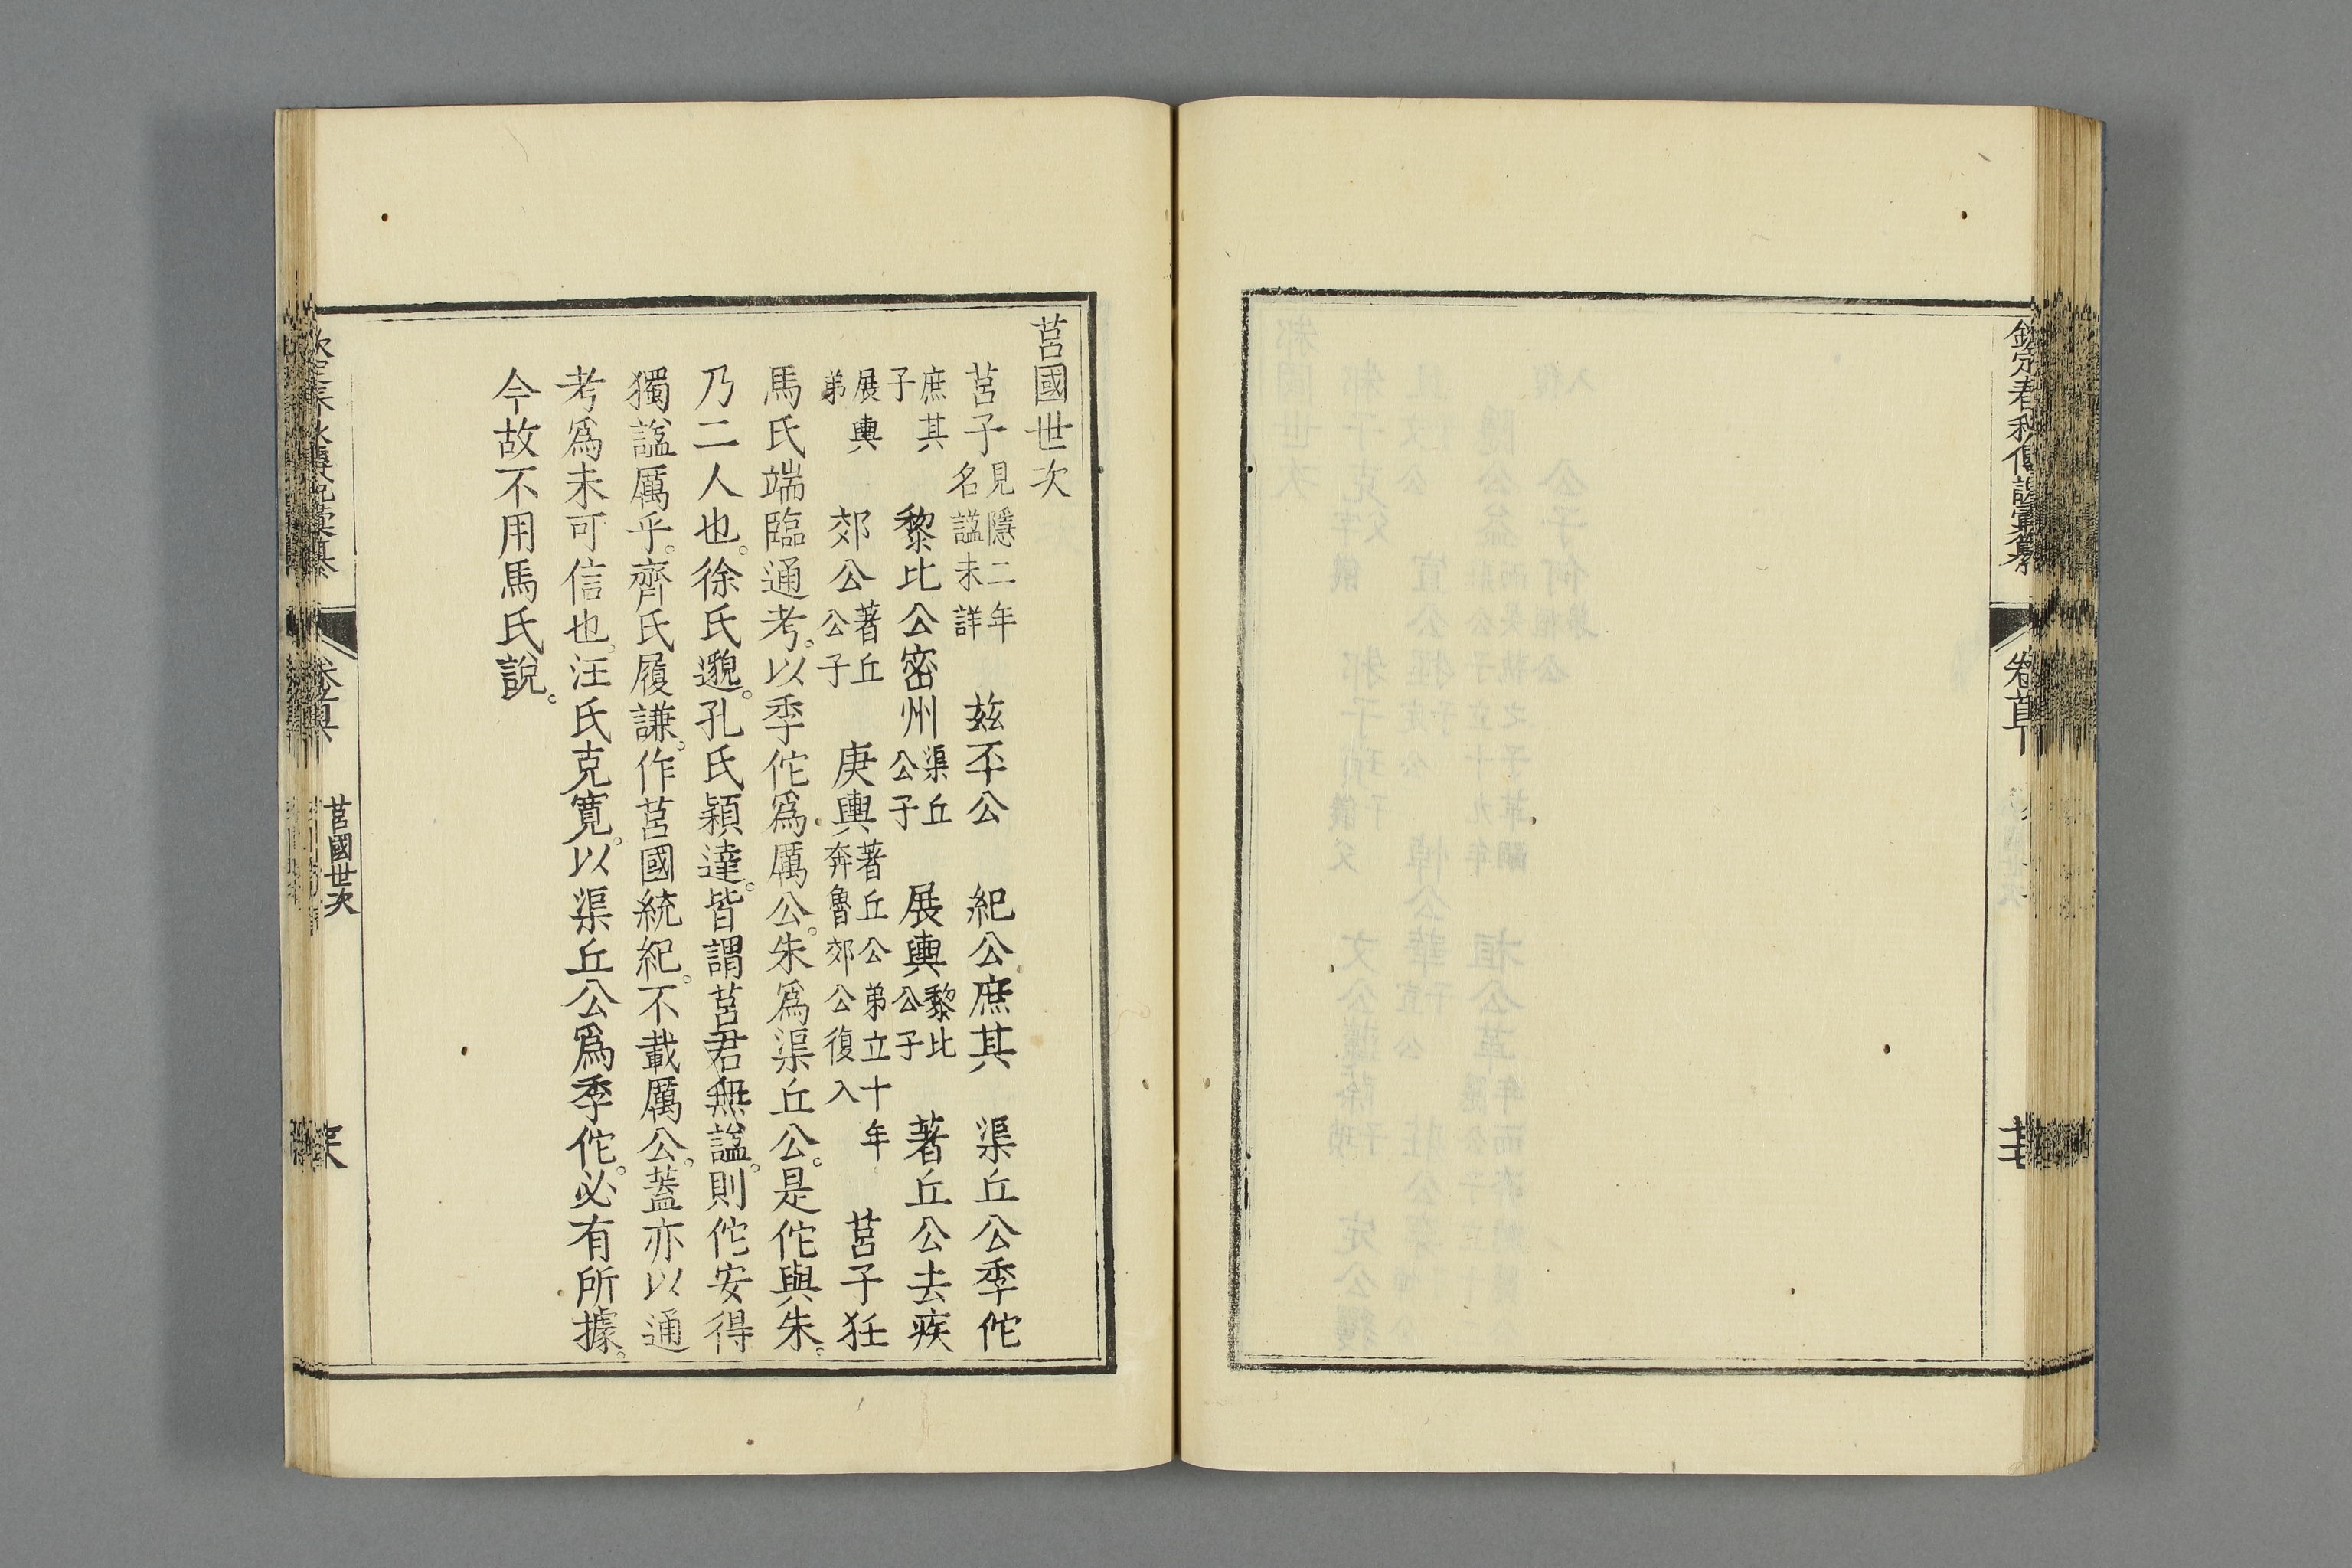 欽定春秋傳說彙纂 卷首下
莒國世次
莒子見隱二年名諡未詳 茲丕公 紀公庶其 渠丘公季佗
庶其子 黎比公密州渠丘公子 展輿黎比公子 著丘公去疾
展輿弟 郊公著丘公子 庚輿著丘公弟立十年奔魯郊公復入 莒子狂
馬氏端臨通考。以季佗爲厲公。朱爲渠丘公。是佗與朱。
乃二人也。徐氏邈。孔氏穎達。皆謂莒君無諡。則佗安得
獨諡厲乎。齊氏履謙。作莒國統紀。不載厲公。蓋亦以通
考爲未可信也。汪氏克寬。以渠丘公爲季佗。必有所據。
今故不用馬氏說。
莒國世次